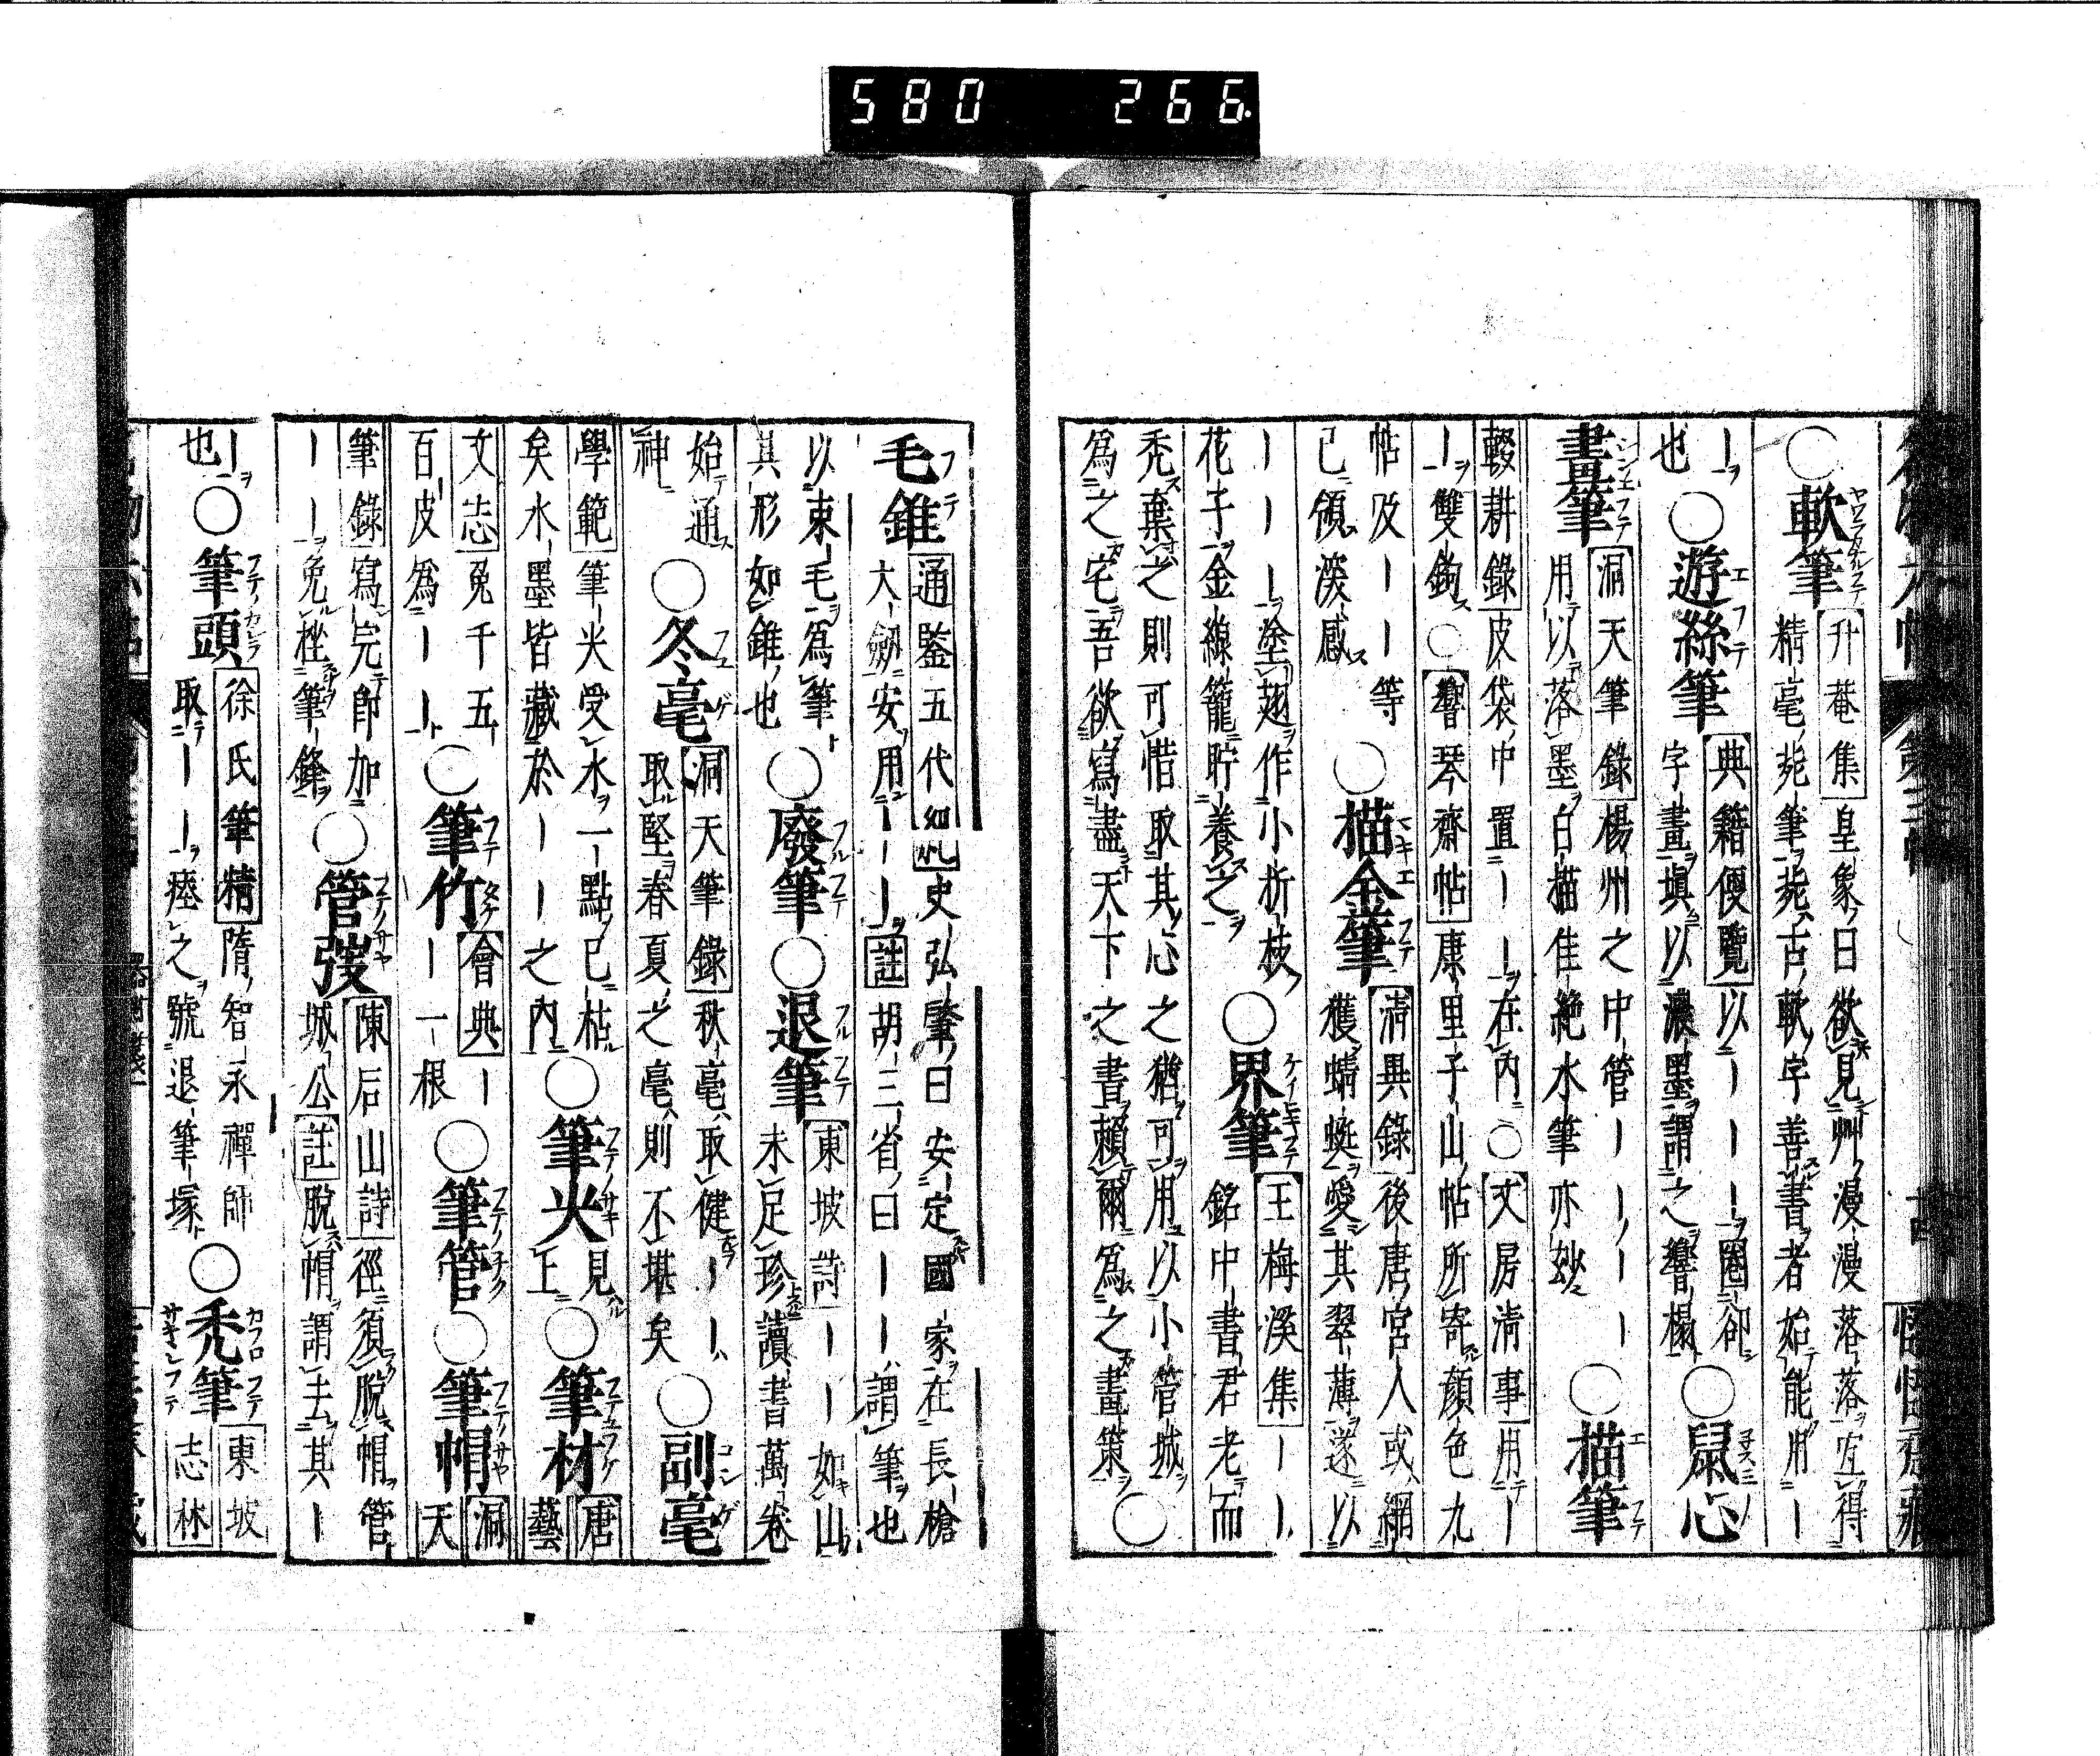 580 266
○軟筆 升菴集 皇象曰欲見艸漫漫落落宜得
精毫㲨筆㲨古軟字善書者始能用一
也○遊絲筆 典籍便覽 以｜｜｜圈卻
字畫塡以濃墨謂之響榻○鼠心
畫筆 洞天筆錄 楊州之中管｜｜｜｜○描筆
用以落墨白描佳絶水筆亦玅
輟耕錄 皮袋中置｜｜在内○文房淸事 用｜
｜雙鉤○響琴齋帖 康里子山帖所寄顔色九
帖及｜｜等○描金筆 淸異錄 後唐宮人或網
已領湥感 獲蜻蜓愛其翠薄遂以
｜｜｜塗翅作小折枝○界筆 王梅溪集 ｜｜
花子金線籠貯養之 銘中書君老而
禿棄之則可惜取其心之猶可用以小管城
爲之宅吾欲寫盡天下之書賴爾爲之畫策○
毛錐 通鑑五代 史弘肇曰安定國家在長槍
大劒安用｜｜｜註胡三省曰｜｜謂筆也
以束毛爲筆○廢筆○退筆 東坡詩 ｜｜如山
其形如錐也 未足珍讀書萬卷
始通○冬毫 洞天筆錄 秋毫取健｜｜○副毫
神 取堅春夏之毫則不堪矣
學範 筆尖受水一點已枯○筆尖 見上○筆材 唐藝
矣水墨皆藏於｜｜之内
文志 兎千五○筆竹 會典 ｜○筆管○筆帽 洞天
百皮爲｜｜｜ ｜一根
筆錄 寫完卽加○管弢 陳后山詩 徑須脫帽管
｜｜｜免挫筆鋒 城公 註 脫帽謂去其｜
｜○筆頭 徐氏筆精 隋智永禪師○禿筆 東坡志林
也 取｜｜瘞之號退筆塚